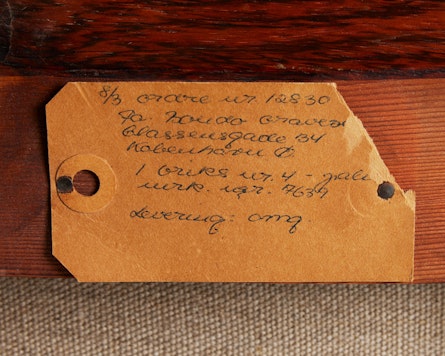 8/3 ordre nr 12830
Fa. Hondo
Classensgade 34
København Ø
1 briks nr. 4 -
mrk. rgr. 7637
Levering: omg.